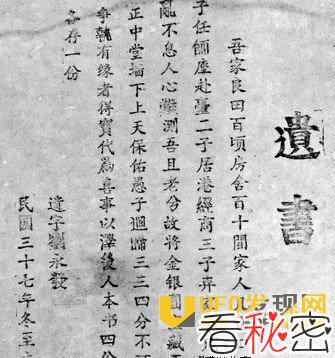 遺書
吾家良田百頃房舍百十間家人
子任師座赴臺二子居港經商三子弃
亂不息人心難測吾且老兮故將金銀圓藏
正中堂墻下上天保佑愚子迴歸三三四分不
爭執有緣者得寶代為喜事以澤後人本书四
各存一份
遺字劉永發
民國三十七年冬至
UFO发现网
看秘密